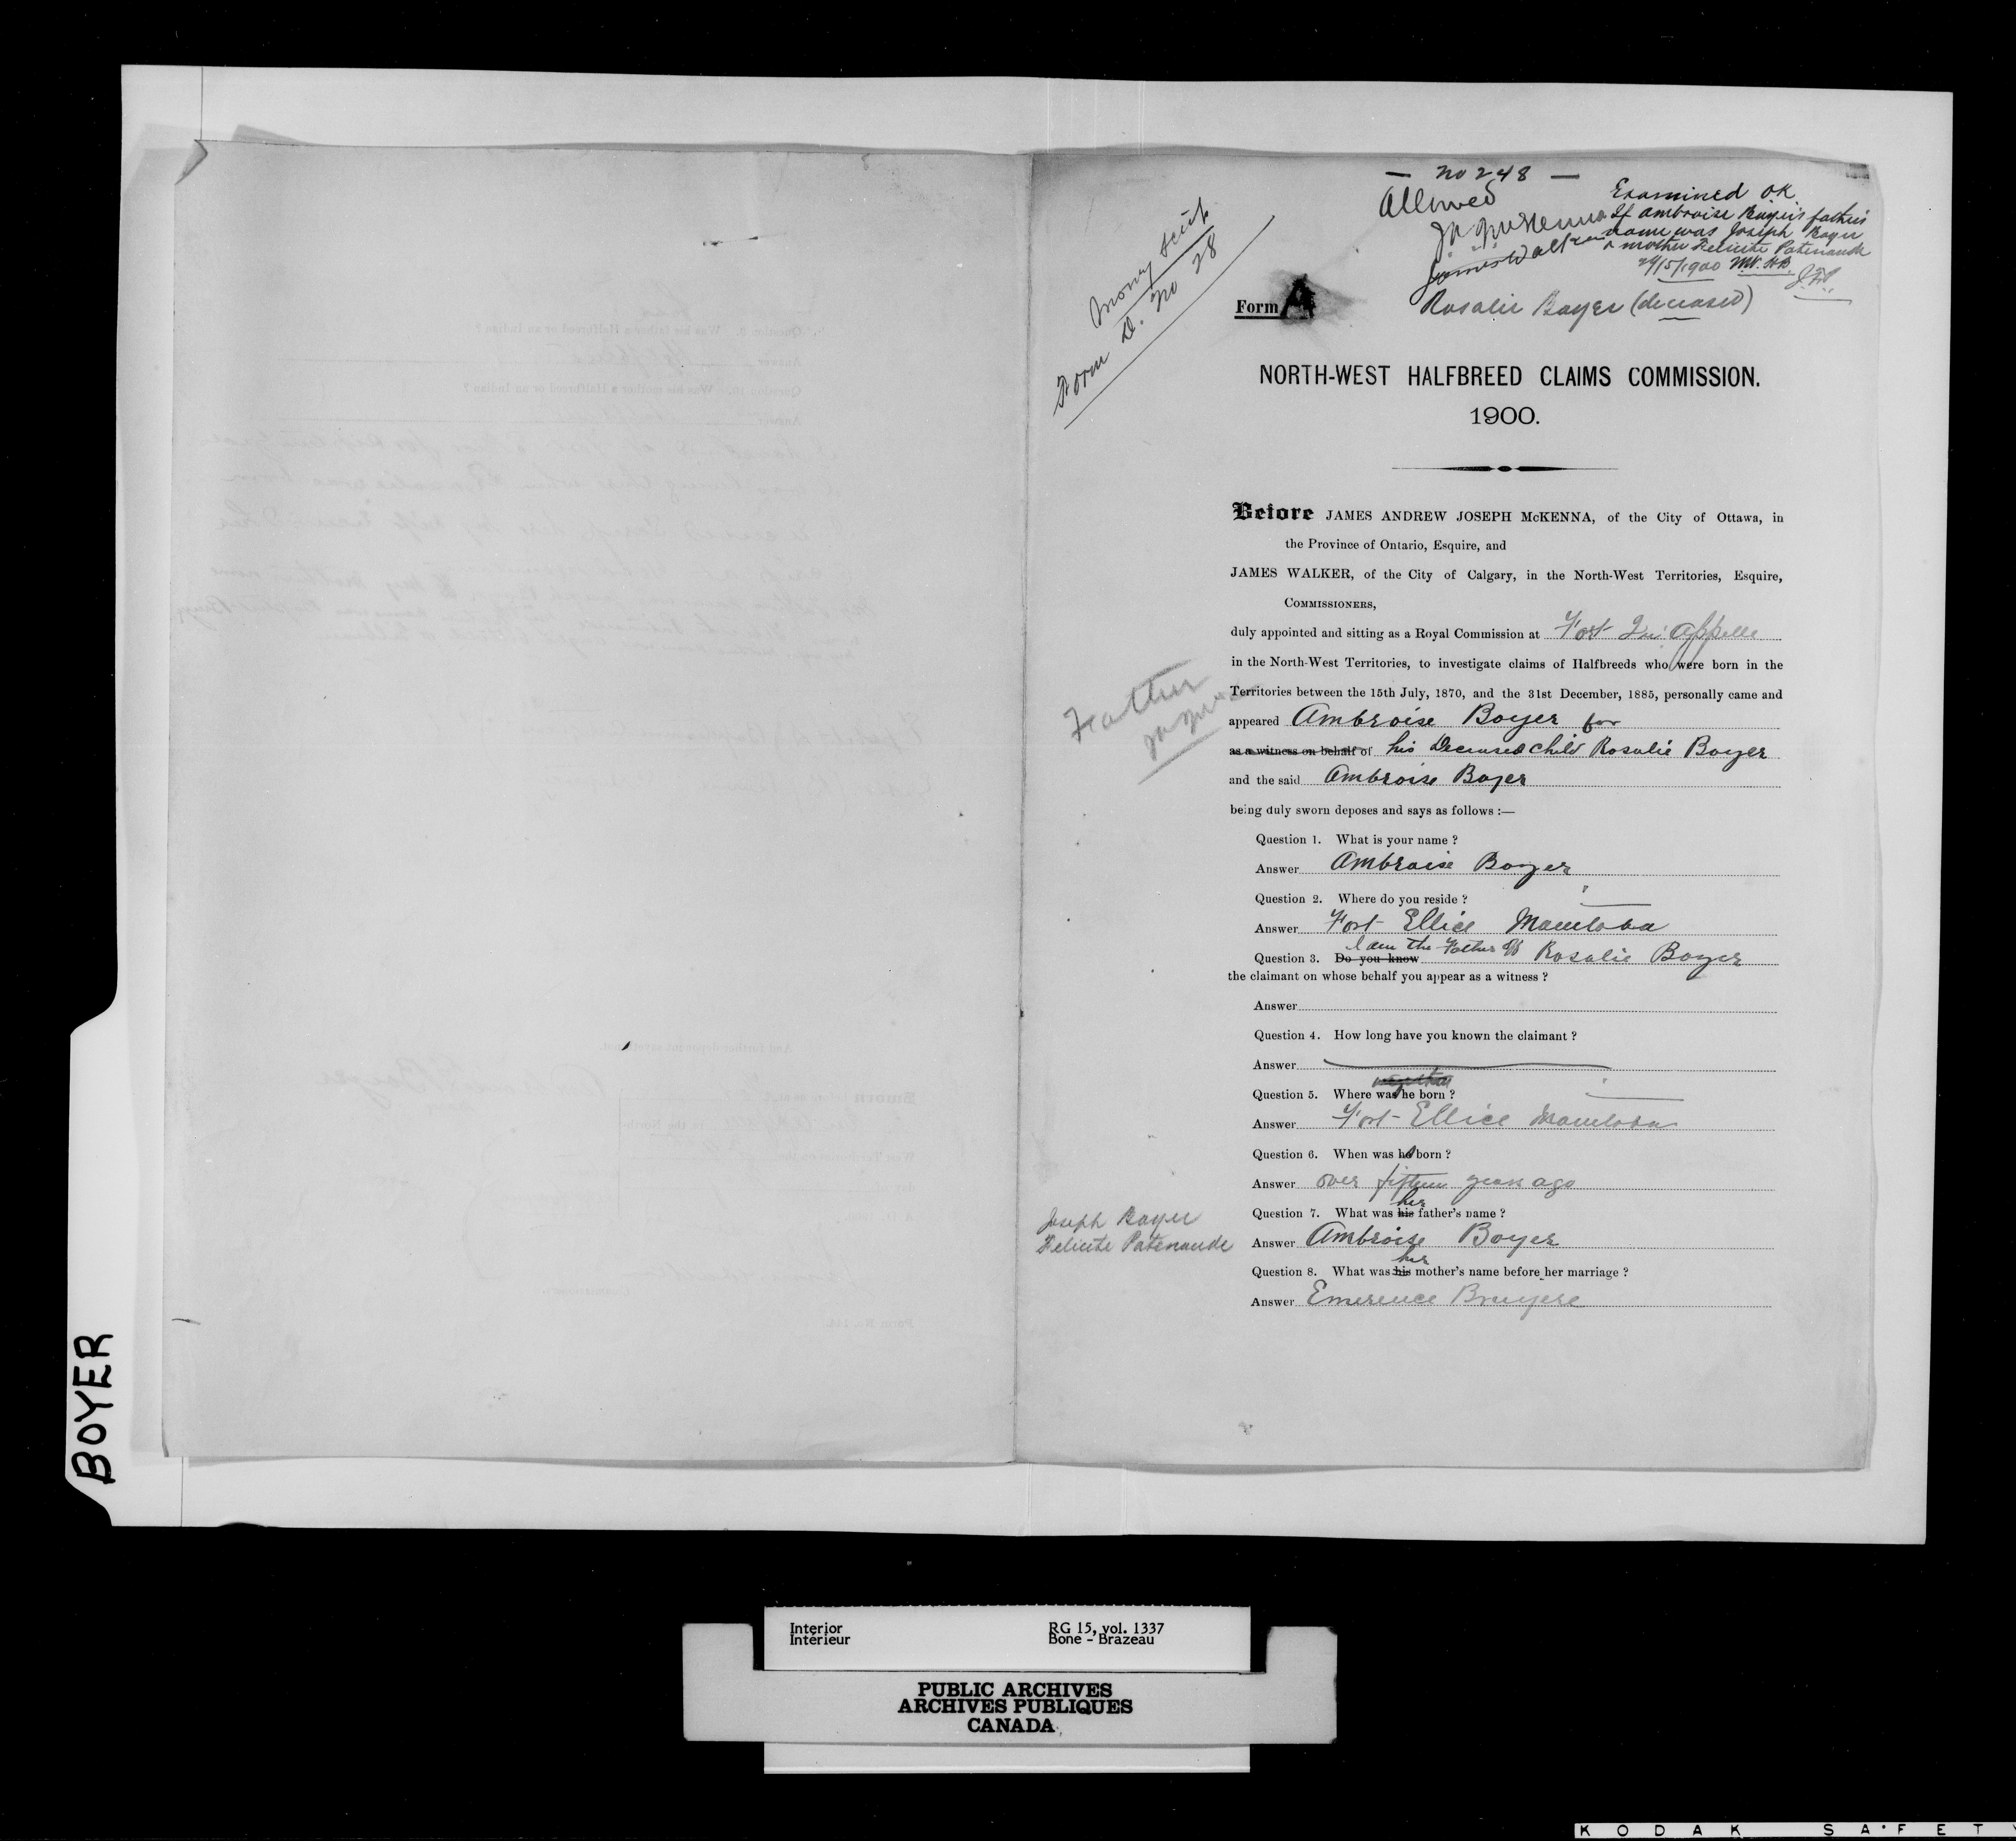 — No 248 —
Allowed
Examined OK
If Ambroise Boyer's father's
name was Joseph Boyer
& mother Felicite Patenaude
29/5/1900
James Walker
Money Scrip
Form D. No 28
Form A
Rosalie Boyer (deceased)
NORTH-WEST HALFBREED CLAIMS COMMISSION.
1900.
Before JAMES ANDREW JOSEPH McKENNA, of the City of Ottawa, in
the Province of Ontario, Esquire, and
JAMES WALKER, of the City of Calgary, in the North-West Territories, Esquire,
COMMISSIONERS,
duly appointed and sitting as a Royal Commission at Fort Qu'Appelle
in the North-West Territories, to investigate claims of Halfbreeds who were born in the
Territories between the 15th July, 1870, and the 31st December, 1885, personally came and
Father
appeared Ambroise Boyer for
as a witness on behalf of his Deceased child Rosalie Boyer
and the said Ambroise Boyer
being duly sworn deposes and says as follows :—
Question 1. What is your name ?
Answer Ambroise Boyer
Question 2. Where do you reside ?
Answer Fort Ellice Manitoba
I am the Father of
Question 3. Do you know Rosalie Boyer
the claimant on whose behalf you appear as a witness ?
Answer
Question 4. How long have you known the claimant ?
Answer
Question 5. Where was he born ?
Answer Fort Ellice Manitoba
Question 6. When was he born ?
Answer over fifteen years ago
her
Question 7. What was his father's name ?
Joseph Boyer
Felicite Patenaude
Answer Ambroise Boyer
her
Question 8. What was his mother's name before her marriage ?
Answer Emerence Bruyere
BOYER
Interior
Intérieur
RG 15, vol. 1337
Bone - Brazeau
PUBLIC ARCHIVES
ARCHIVES PUBLIQUES
CANADA
KODAK SAFET